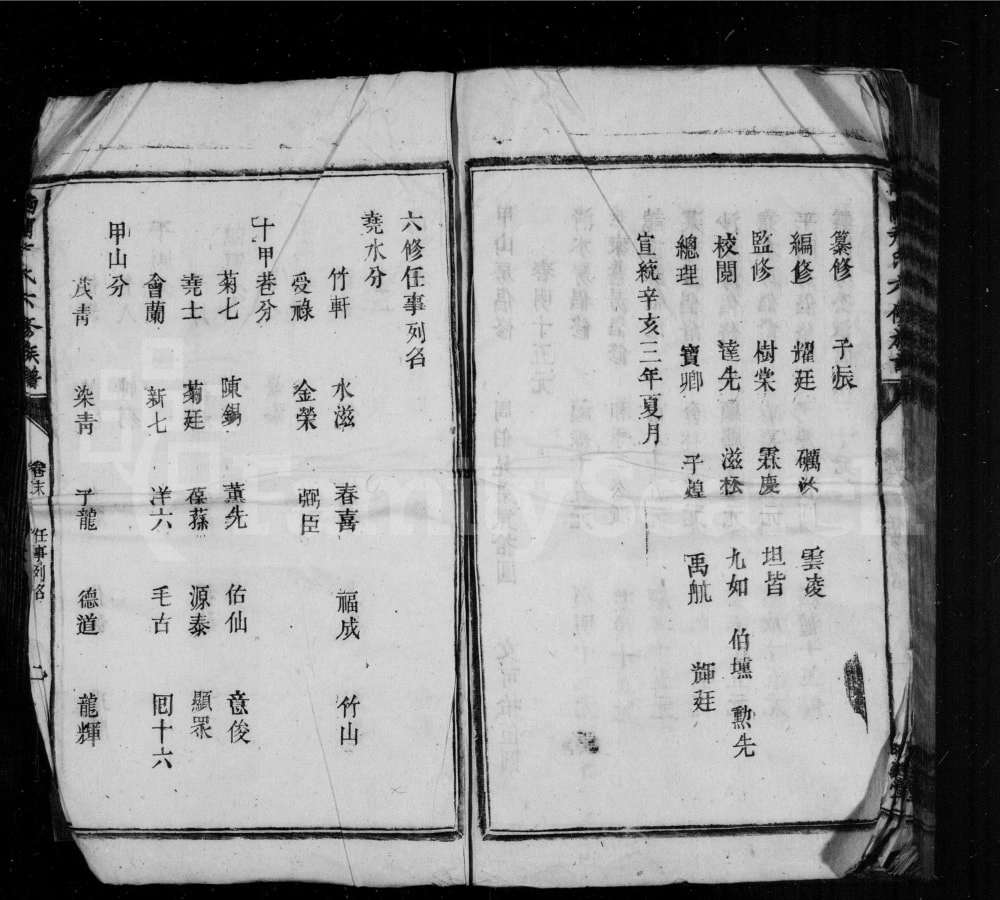 纂修 子振
編修 耀廷 礪 雲凌
監修 樹棠 霖慶 坦皆
校閱 達先 滋 九如 伯壎 勲先
總理 寶卿 子煌 禹航 輝廷
宣統辛亥三年夏月
六修任事列名
堯水分
竹軒 水滋 春喜 福成 竹山
受祿 金榮 弼臣
十甲巷分
菊七 陳錫 薫先 佑仙 意俊
堯士 菊廷 葆蓀 源泰 顯眾
會蘭 新七 洋六 毛古 囘十六
甲山分
茂青 染青 子龍 德道 龍輝
六修族譜
卷末
任事列名
二